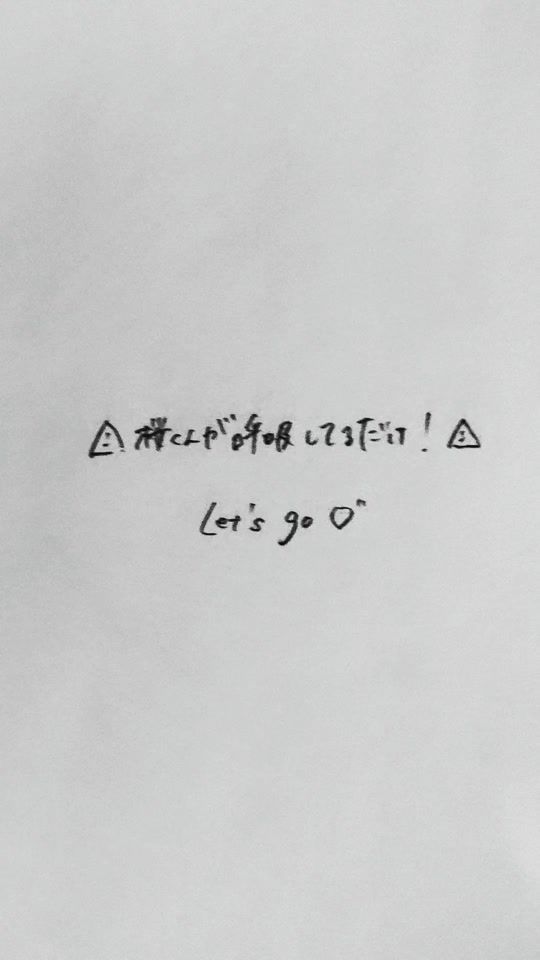 ⚠桜くんが呼吸してるだけ!⚠
Let's go♡"